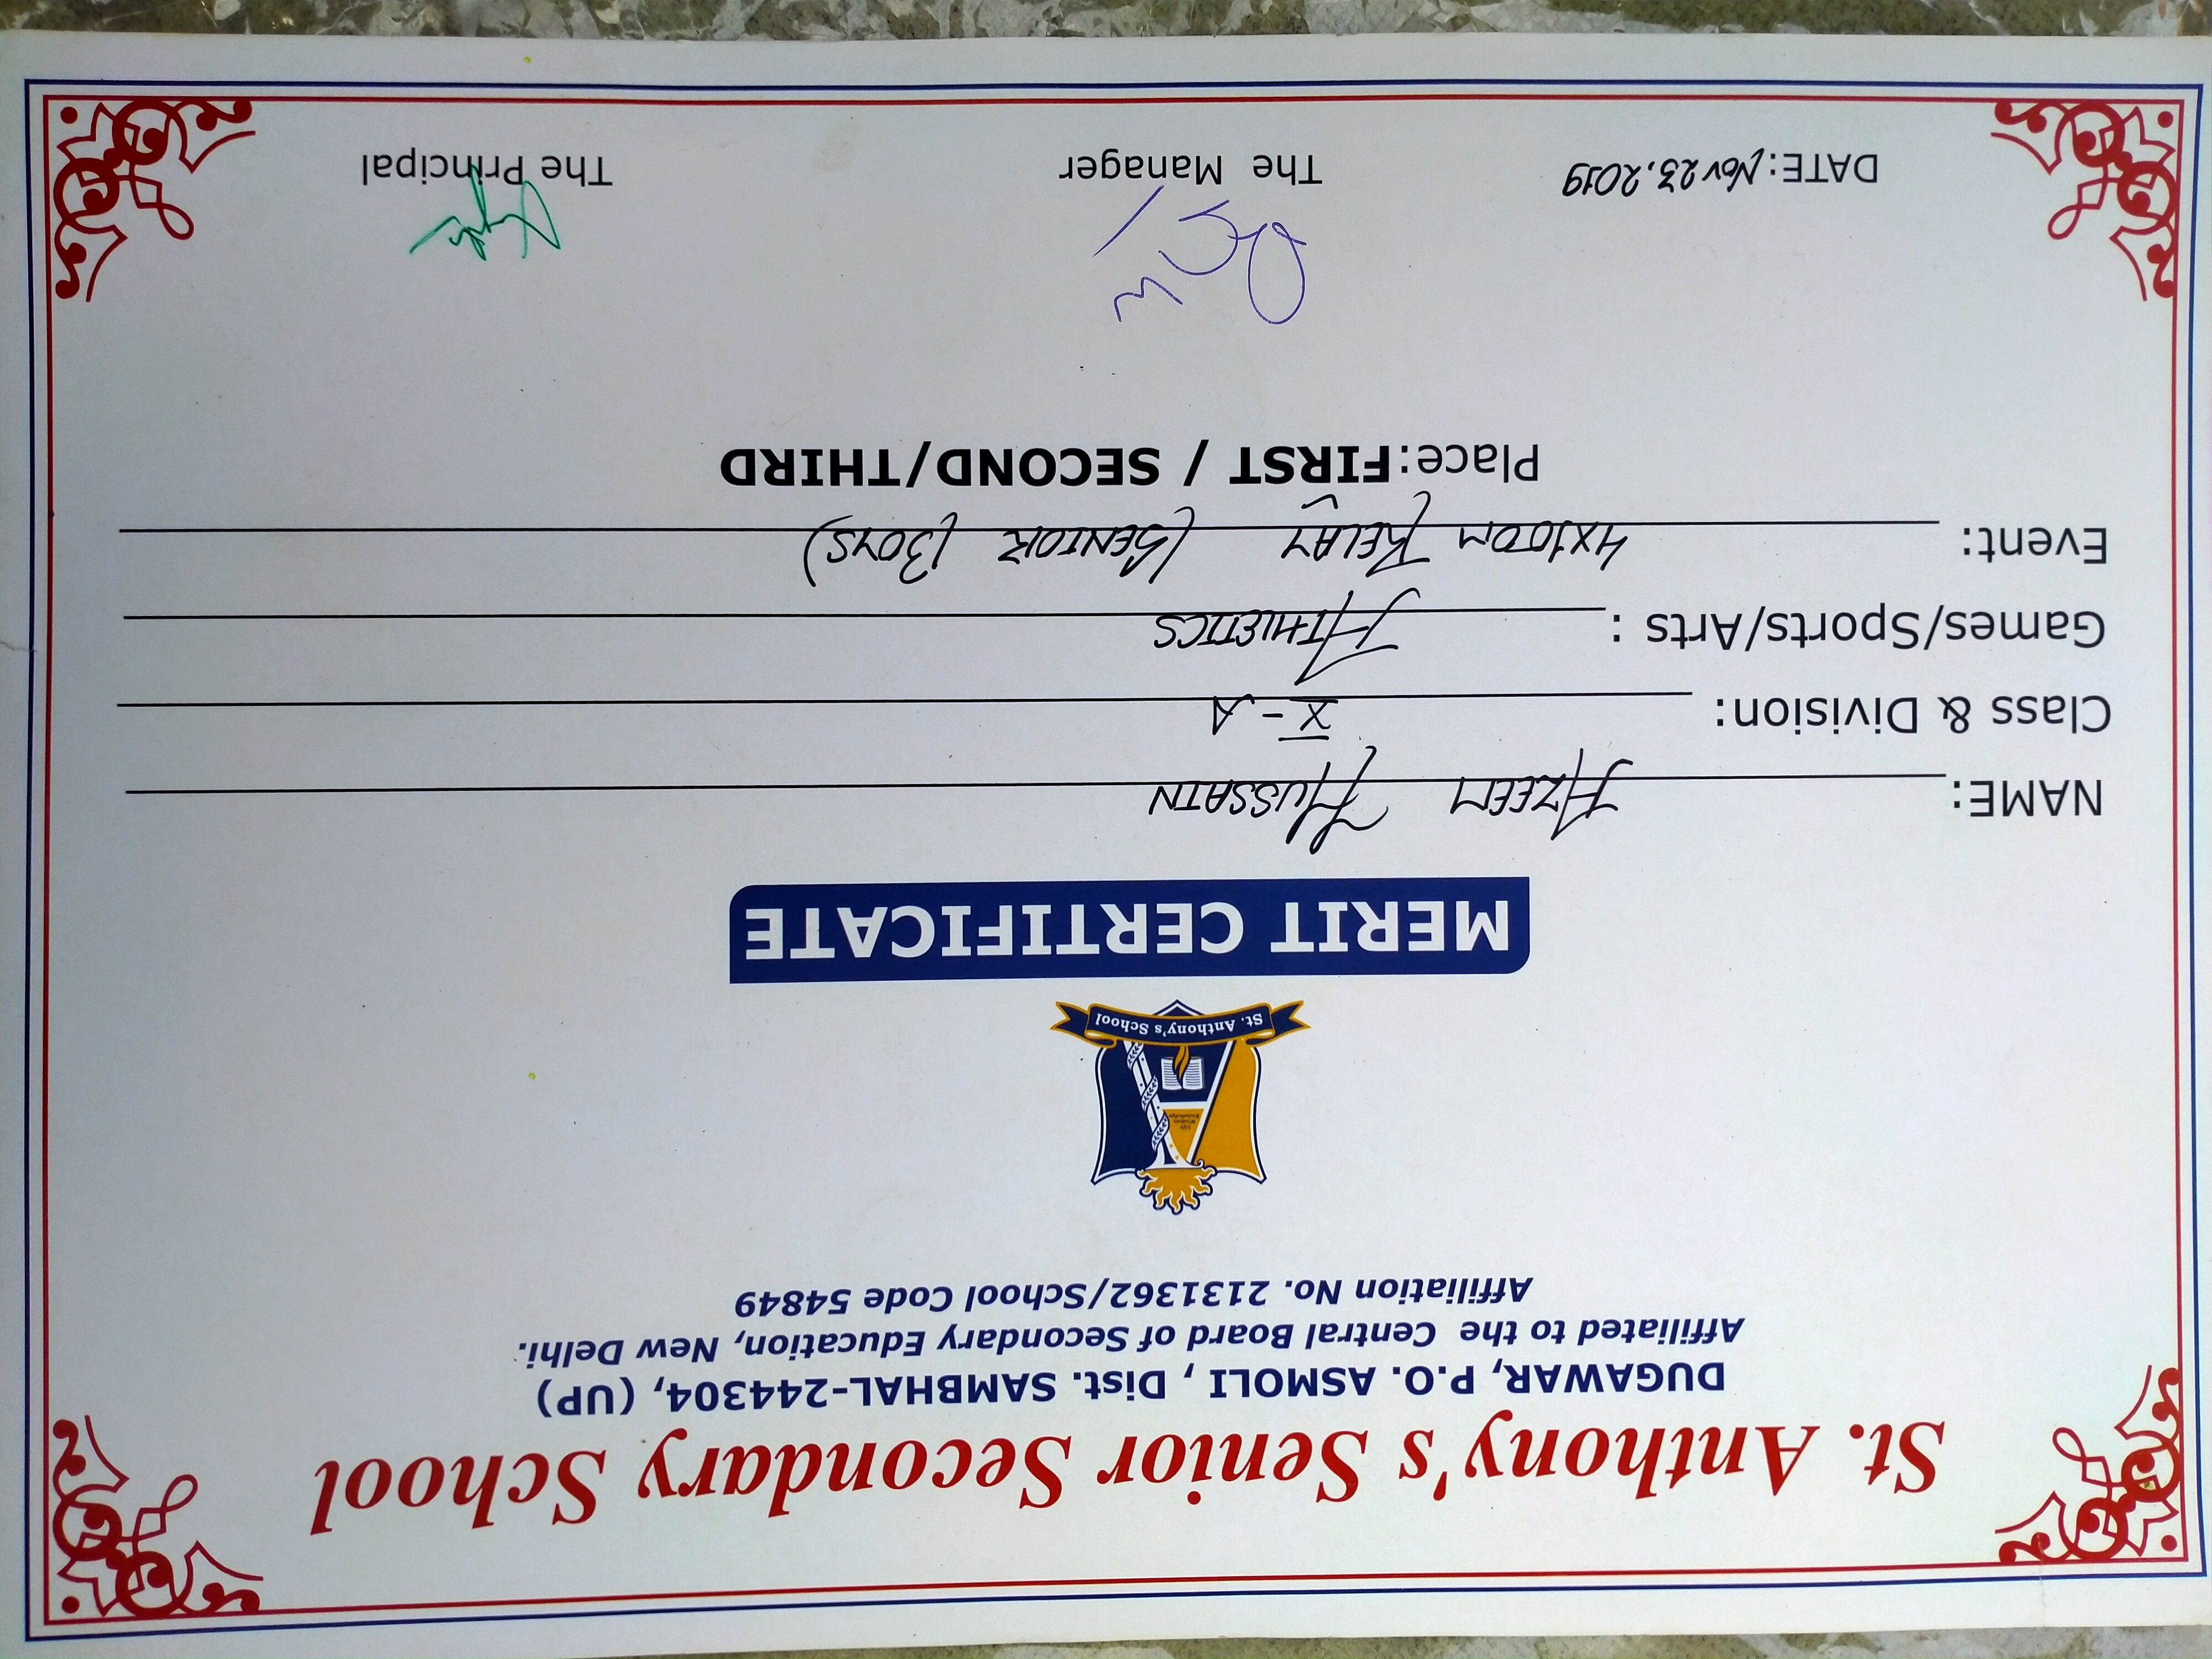 St. Anthony's Senior Secondary School
DUGAWAR, P.O. ASMOLI , Dist. SAMBHAL-244304, (UP)
Affiliated to the Central Board of Secondary Education, New Delhi.
Affiliation No. 2131362/School Code 54849
Life
Wisdom
Knowledge
St. Anthony's School
MERIT CERTIFICATE
NAME: AZEEM HUSSAIN
Class & Division: X-A
Games/Sports/Arts : ATHLETICS
Event: 4X100M RELAY (SENIOR BOYS)
Place:FIRST / SECOND/THIRD
DATE: Nov 23, 2019
The Manager
The Principal